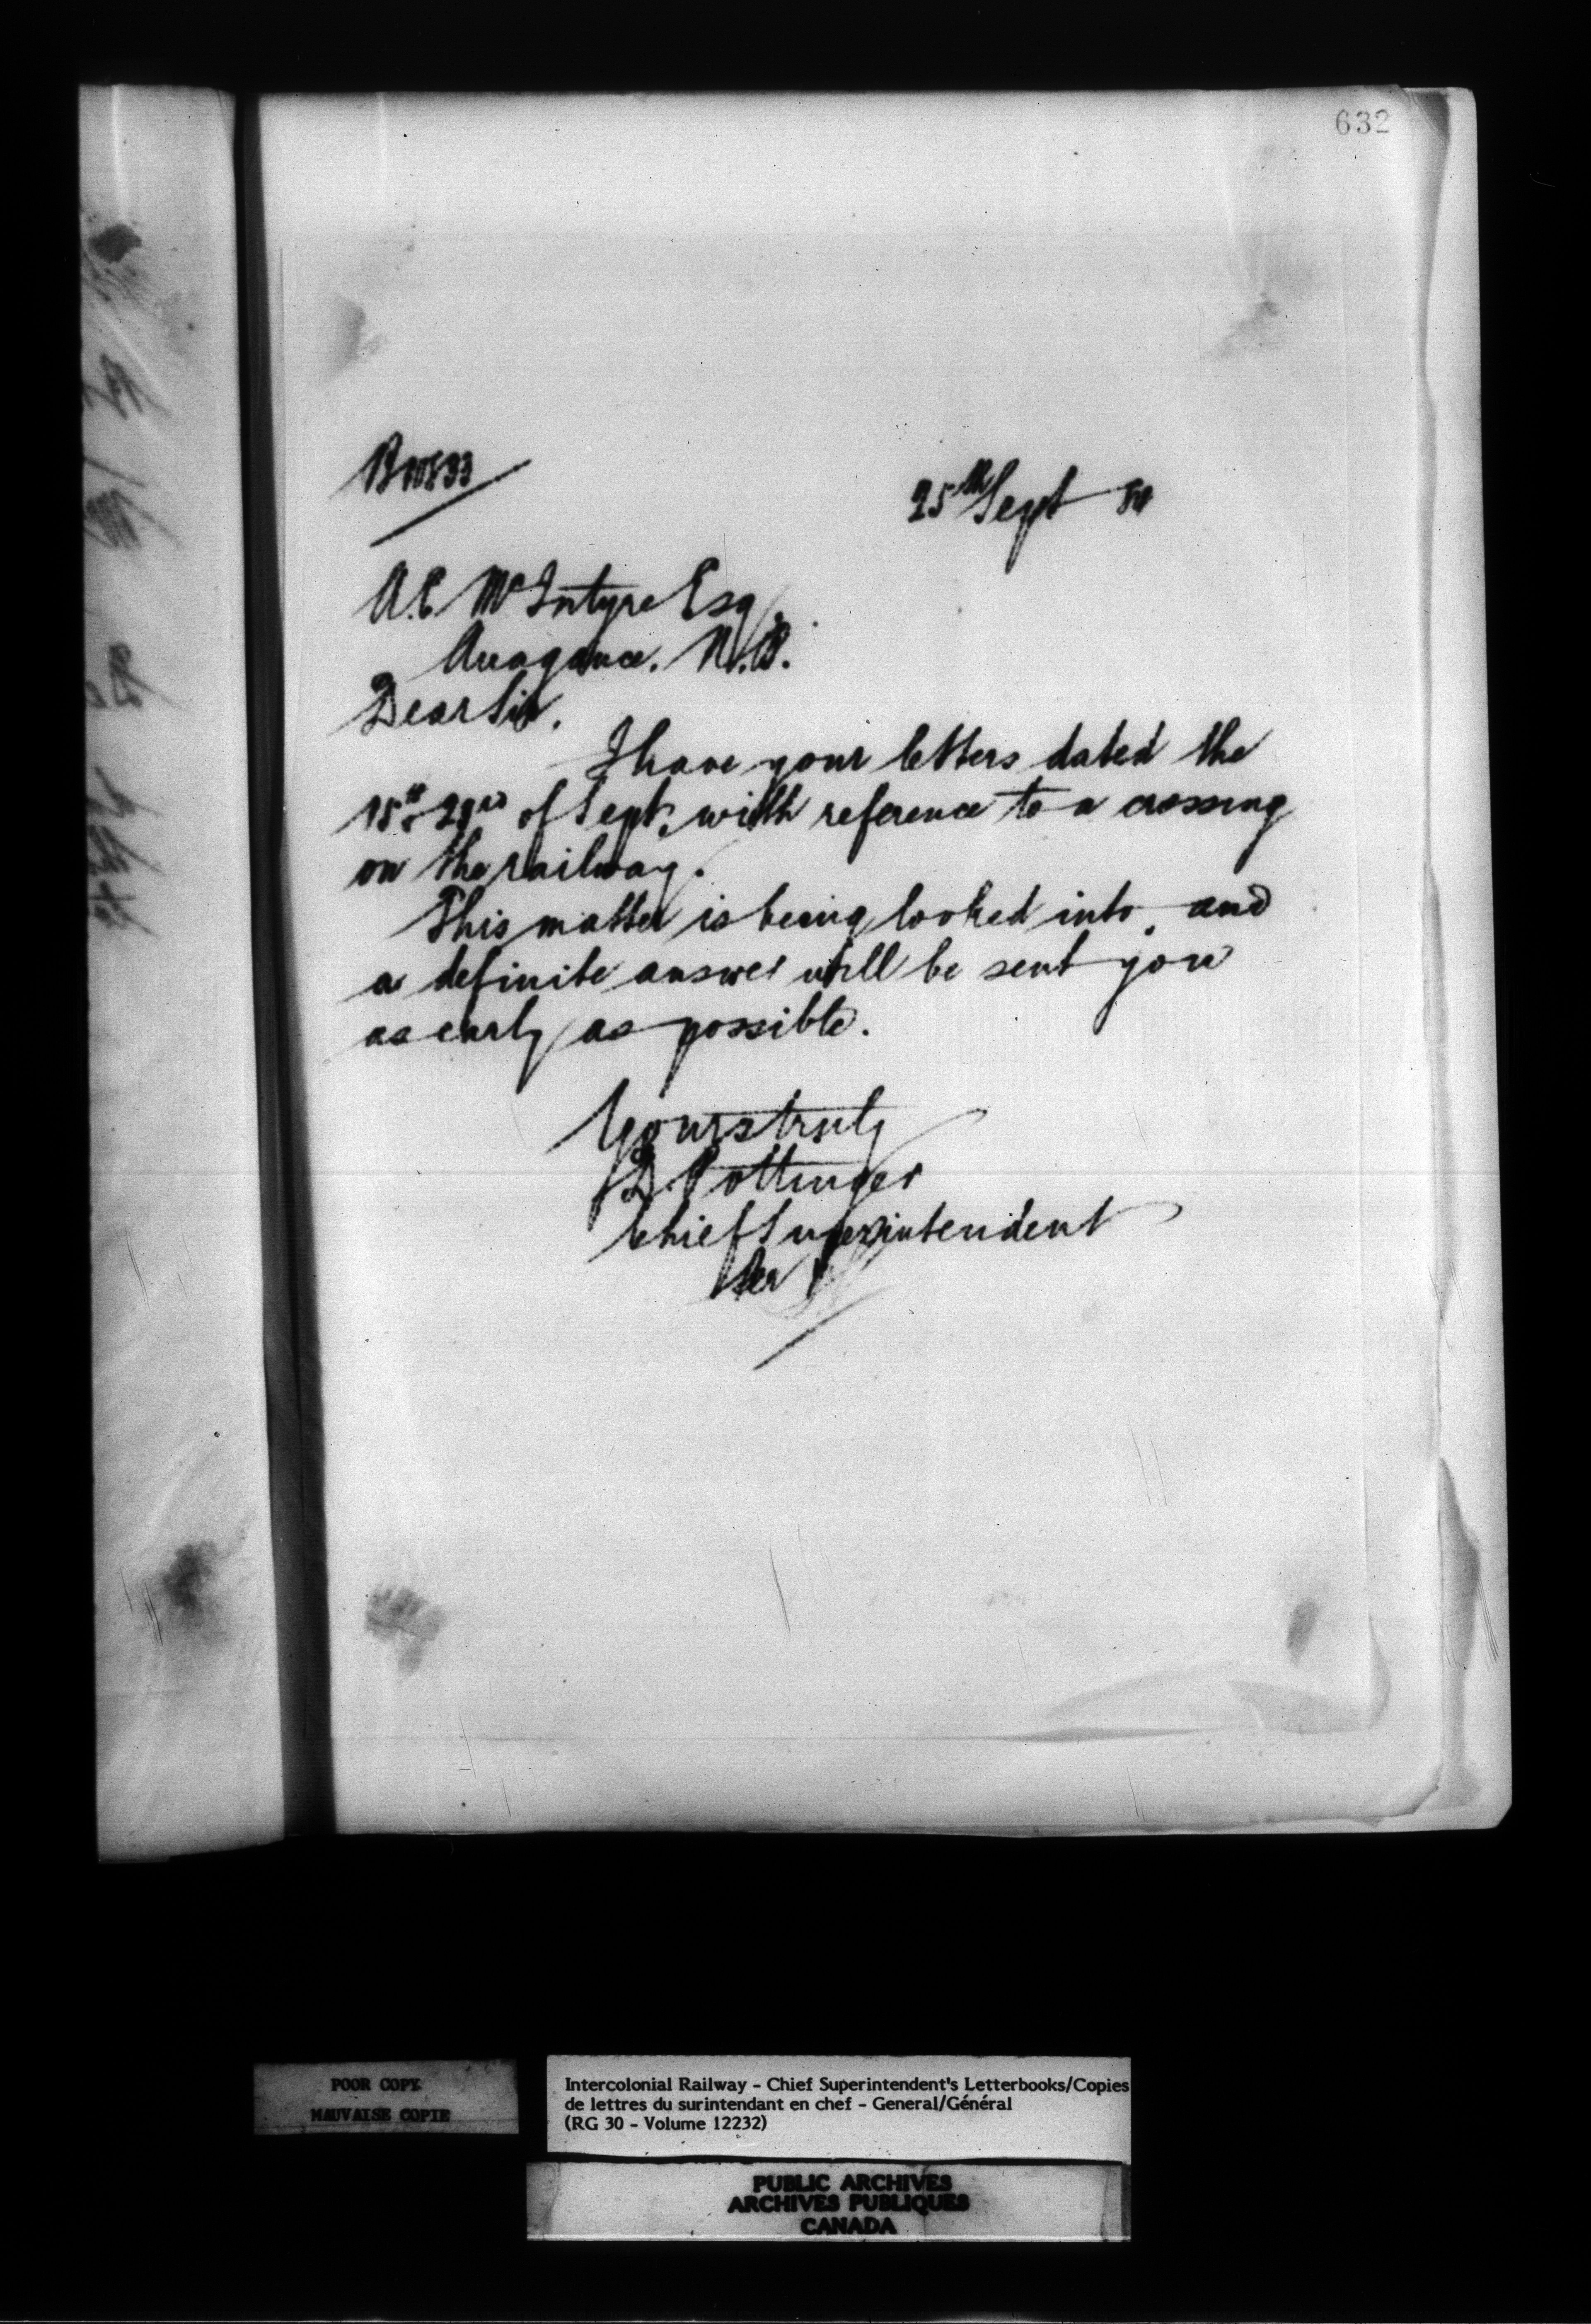 632
B10833
25th Sept 80
A.E McIntyre Esq.
Anagance. N.B.
Dear Sir.
I have your letters dated the
18th & 23rd of Sept. with reference to a crossing
on the railway.
This matter is being looked into, and
a definite answer will be sent you
as early as possible.
Yours truly
D. Pottinger
Chief Superintendent
Per
POOR COPY
MAUVAISE COPIE
Intercolonial Railway - Chief Superintendent's Letterbooks/Copies
de lettres du surintendant en chef - General/Général
(RG 30 - Volume 12232)
PUBLIC ARCHIVES
ARCHIVES PUBLIQUES
CANADA